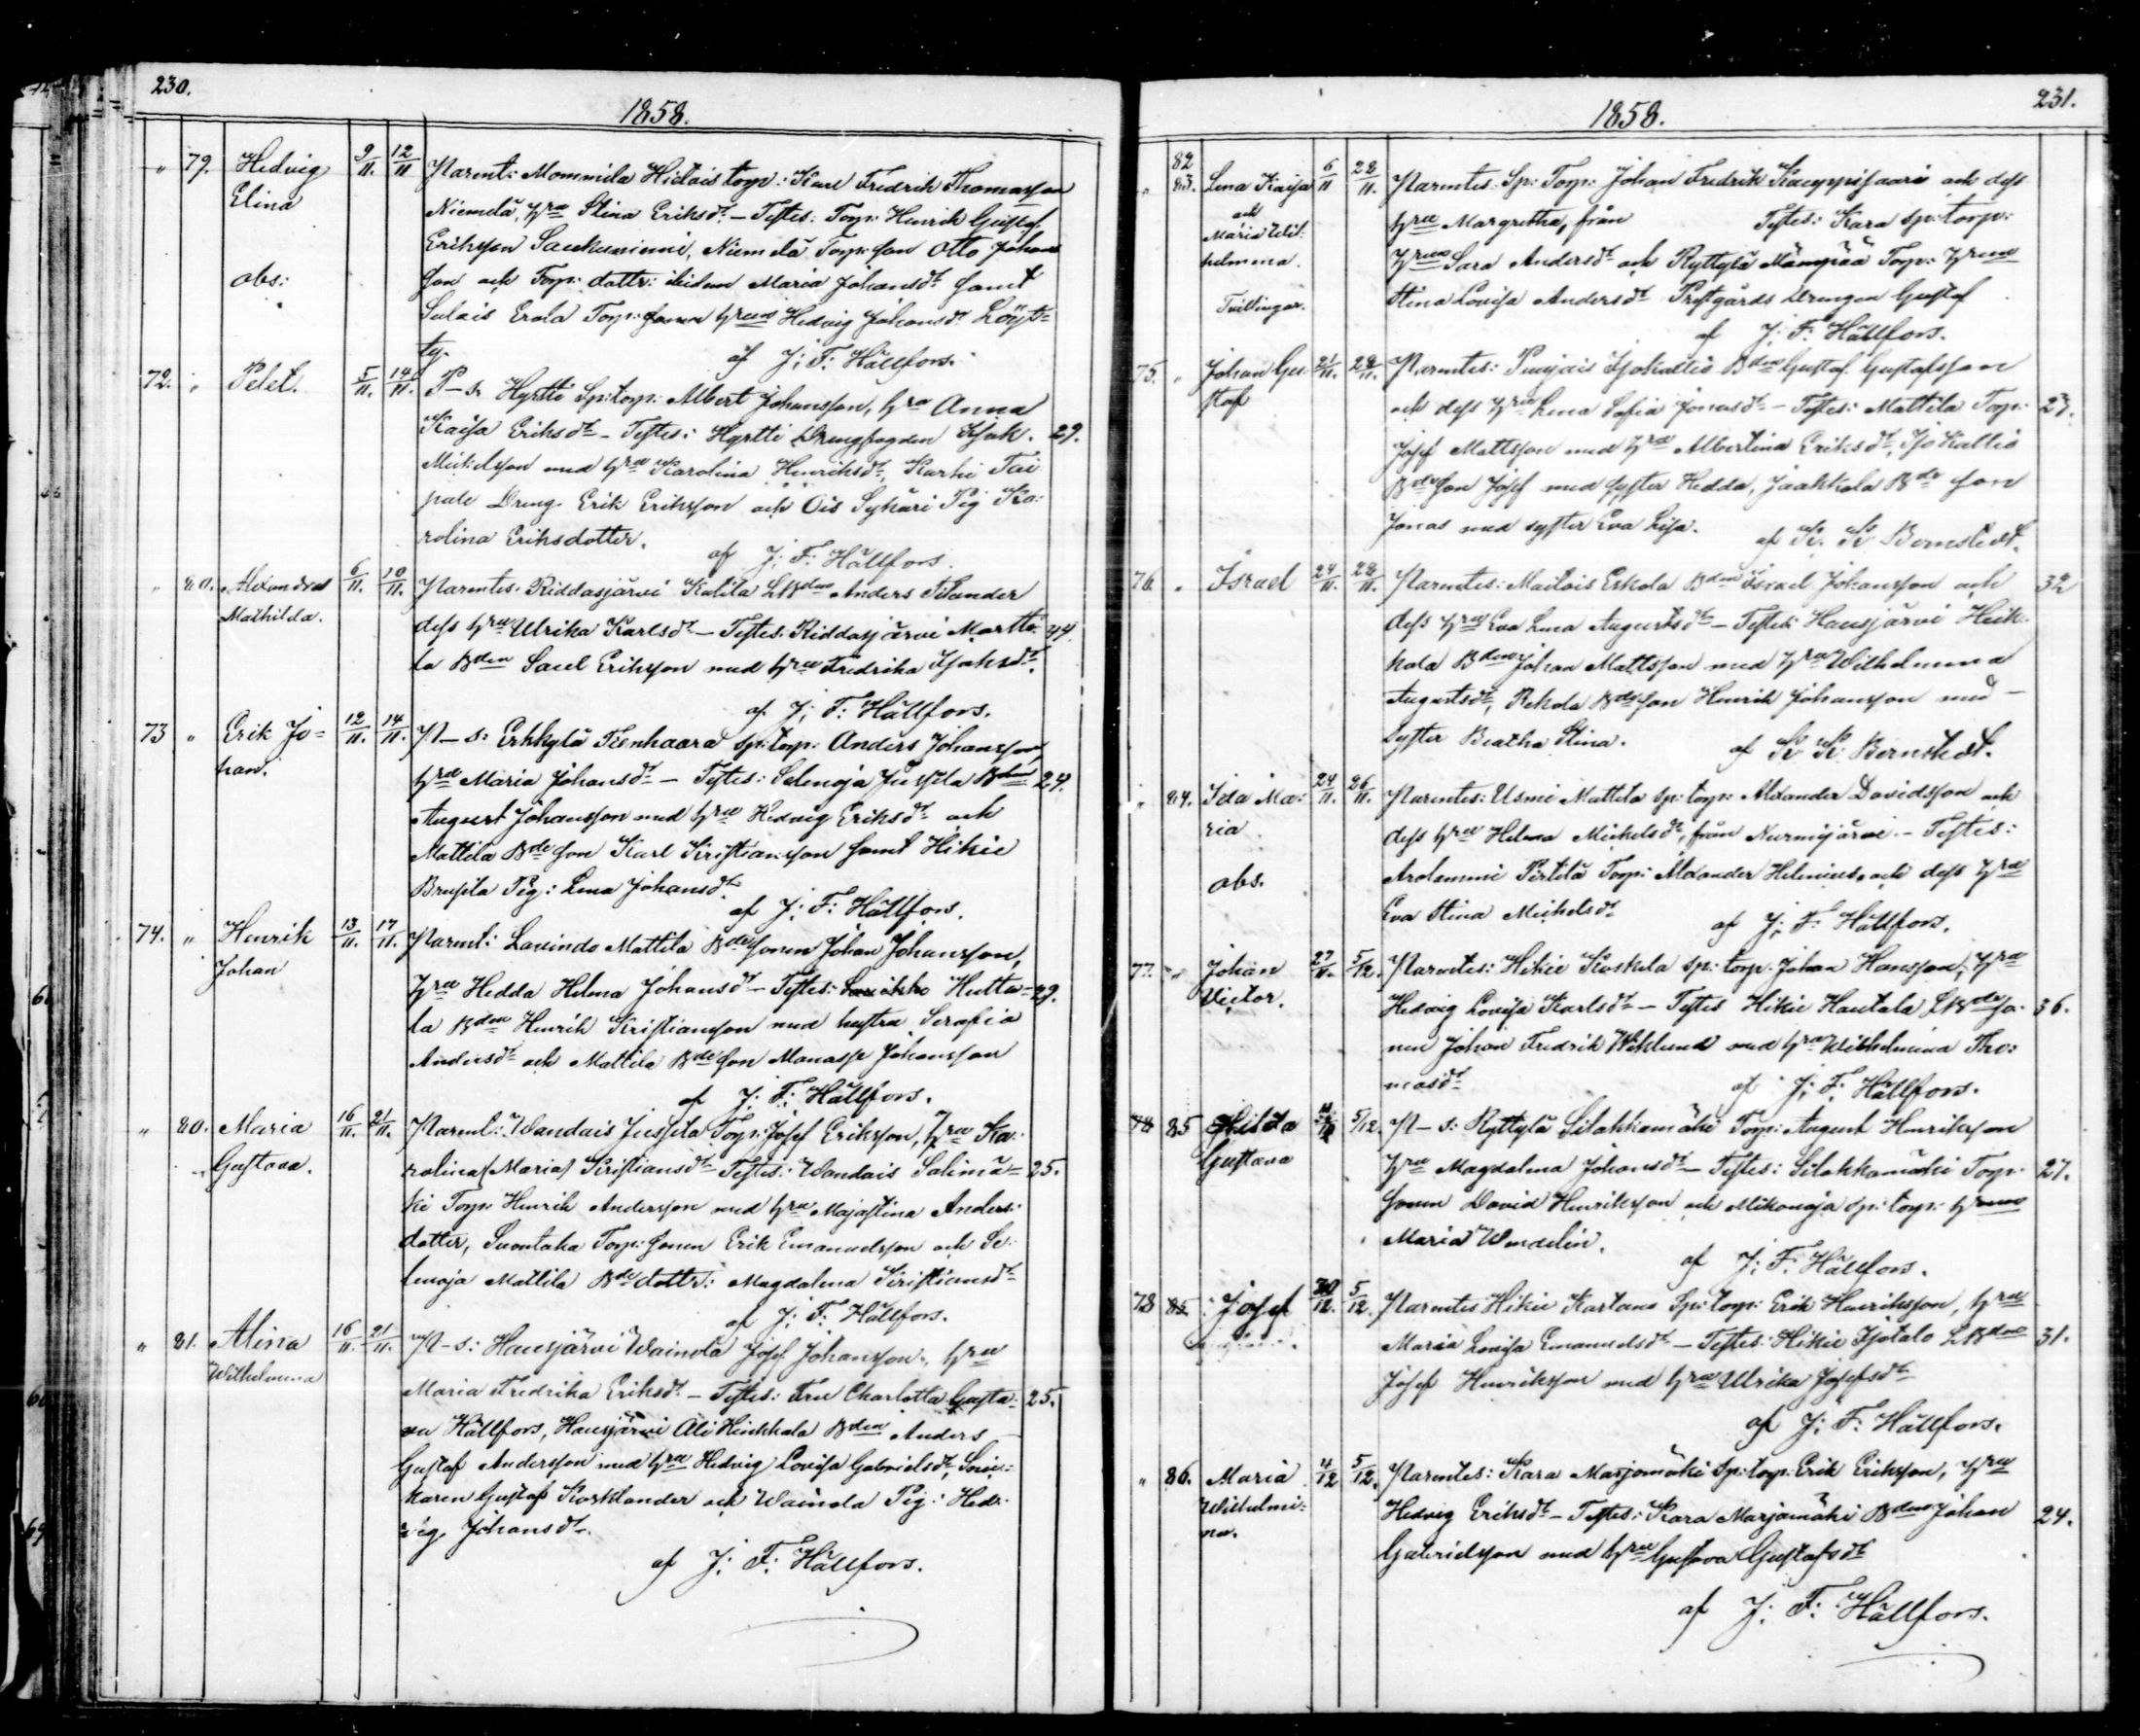 230.
1858.
" 79. Hedvig 9/11. 12/11 Parent: Mommila Hietois torp: Karl Fredrik Thomasson
Elina Niemelä, hru Stina Eriksdt – Testes: Torp: Henrik Gustaf
Eriksson Niemelä Torp: son Otto Johans
obs: son och Torp: dottr: ibidem Maria Johansdt samt
Erola Torp: sonen hrun Hedvig Johansdt Löyt-
ty. af J: F: Hällfors.
72. " Petet. 5/11. 14/11. P–s Hyrtti Sp:torp: Albert Johansson, hru Anna
Kaisa Eriksdt – Testes: Hyrtti Drengfogden Isak. 29.
Mickelson med hru Karolina Henriksdt, Karhi Tai
pale Dreng Erik Eriksson och Ois Sykäri Pig Ka:
rolina Eriksdotter.
af J: F: Hällfors.
" 80. Alexandra 6/11. 10/11. Parentes: Riddasjärvi Kulila LBdn Anders Silander
Mathilda. dess hru Ulrika Karlsdt – Testes: Riddasjärvi Martti- 44
la Bden Saul Eriksson med hru Fredrika Isaksdt.
af J: F: Hällfors.
73 " Erik Jo= 12/11. 14/11. P–s: Erkkylä Kenhaara sp:torp: Anders Johansson,
han. hru Maria Johansdt – Testes: Selenoja Jussila Bden 24.
August Johansson med hru Hedvig Eriksdt och
Mattila Bde son Karl Kristiansson samt Hikie
Brusila Pig: Lena Johansdt.
af J: F: Hällfors.
74. " Henrik 13/11. 17/11. Parent: Lavindo Mattila Bdesonen Johan Johansson,
Johan hru Hedda Helena Johansdt – Testes: Hutti= 29.
la Bden Henrik Kristiansson med hustru Serafia
Andersdt och Mattila Bde son Manasse Johansson
af J: F: Hällfors.
" 80. Maria 16/11. 21/11. Parent: Wandais Jussila Torp: Josef Eriksson, hru Ka:
Gustava. rolina (Maria) Kristiansdt – Testes: Wandais Salimä= 25.
ki Torp: Henrik Andersson med hru Majastina Anders:
dotter, Suontaka Torp: sonen Erik Emanuelsson och Se:
lenoja Mattila Bde dottr: Magdalena Kristiansdt
af J: F: Hällfors.
" 81. Alina 16/11. 21/11. P–s: Hausjärvi Wainola Josef Johansson, hru
Wilhelmina Maria Fredrika Eriksdt – Testes: Fru Charlotta Gusta: 25.
va Hällfors, Hausjärvi Ali Heikkala Bden Anders
Gustaf Andersson med hru Hedvig Lovisa Gabrielsdt,
karen Gustaf och Wainola Pig: Hed:
vig Johansdt.
af J: F: Hällfors.
231.
1858.
" 82 83. Lena Kaisa 6/11 28/11. Parentes: Sp: Torp: Johan Fredrik Kauppisaari och dess
och hru Margretha, från Testes: Kara sp:torp:
Maria Wil- hrun Sara Andersdt och Ryttylä Torp: hrun
helmina. Stina Lovisa Andersdt Prestgårds Drengen Gustaf
Tvillingar. af J: F: Hällfors.
75. " Johan Gu- 21/11. 28/11. Parentes: Puujais Isokallio Bden Gustaf Gustafsson
staf och dess hru Lena Sofia Jonasdt – Testes: Mattila Torp: 27.
Josef Mattsson med hru Albertina Eriksdt, Isokallio
Bde son Josef med syster Hedda, Jaakkola Bde son
Jonas med syster Eva Lisa.
af K. K. Bernstedt.
76. " Israel 24/11. 28/11. Parentes: Maitois Erkola Bden Israel Johansson och 32
dess hru Eva Lena Augustsdt – Testes: Hausjärvi Heik:
kola Bden Johan Mattsson med hru Wilhelmina
Augustsdt, Rekola Bdeson Henrik Johansson med
syster Beatha Stina. af K. K. Bernstedt.
" 84. Ida Ma: 24/11. 26/11. Parentes: Usmi Mattila sp:torp: Alexander Davidsson och
ria. dess hru Helena Mickelsdt, från Nurmijärvi – Testes:
Arolammi Pirtilä Torp: Alexander Helenius, och dess hru
obs. Eva Stina Mickelsdt
af J: F: Hällfors.
77. " Johan 27/11. 5/12. Parentes: Hikie Koskela sp:torp: Johan Hansson, hru
Victor. Hedvig Lovisa Karlsdt – Testes Hikie Hautala LBde so- 36.
nen Johan Fredrik Wiklund med hru Wilhelmina Tho:
masdt af J: F: Hällfors.
74 85 Hilda 5/12. P–s: Ryttylä Silakkamäki Torp: August Henriksson
Gustava hru Magdalena Johansdt – Testes: Silakkamäki Torp: 27.
sonen David Henriksson och Mikonoja sp:torp: hrun
Maria Wendelin.
af J: F: Hällfors.
78 85 Josef 30/12. 5/12. Parentes Hikie Kartano Sp:torp: Erik Henriksson, hru
Maria Lovisa Emanuelsdt – Testes: Hikie Isotalo LBden 31.
Josef Henriksson med hru Ulrika Josefsdt
af J: F: Hällfors.
" 86. Maria 4/12 5/12. Parentes: Kara Marjomäki Sp:torp: Erik Eriksson, hru
Wilhelmi- Hedvig Eriksdt – Testes: Kara Marjamäki Bden Johan 24.
na. Gabrielsson med hru Gustava Gustafsdt
af J: F: Hällfors.